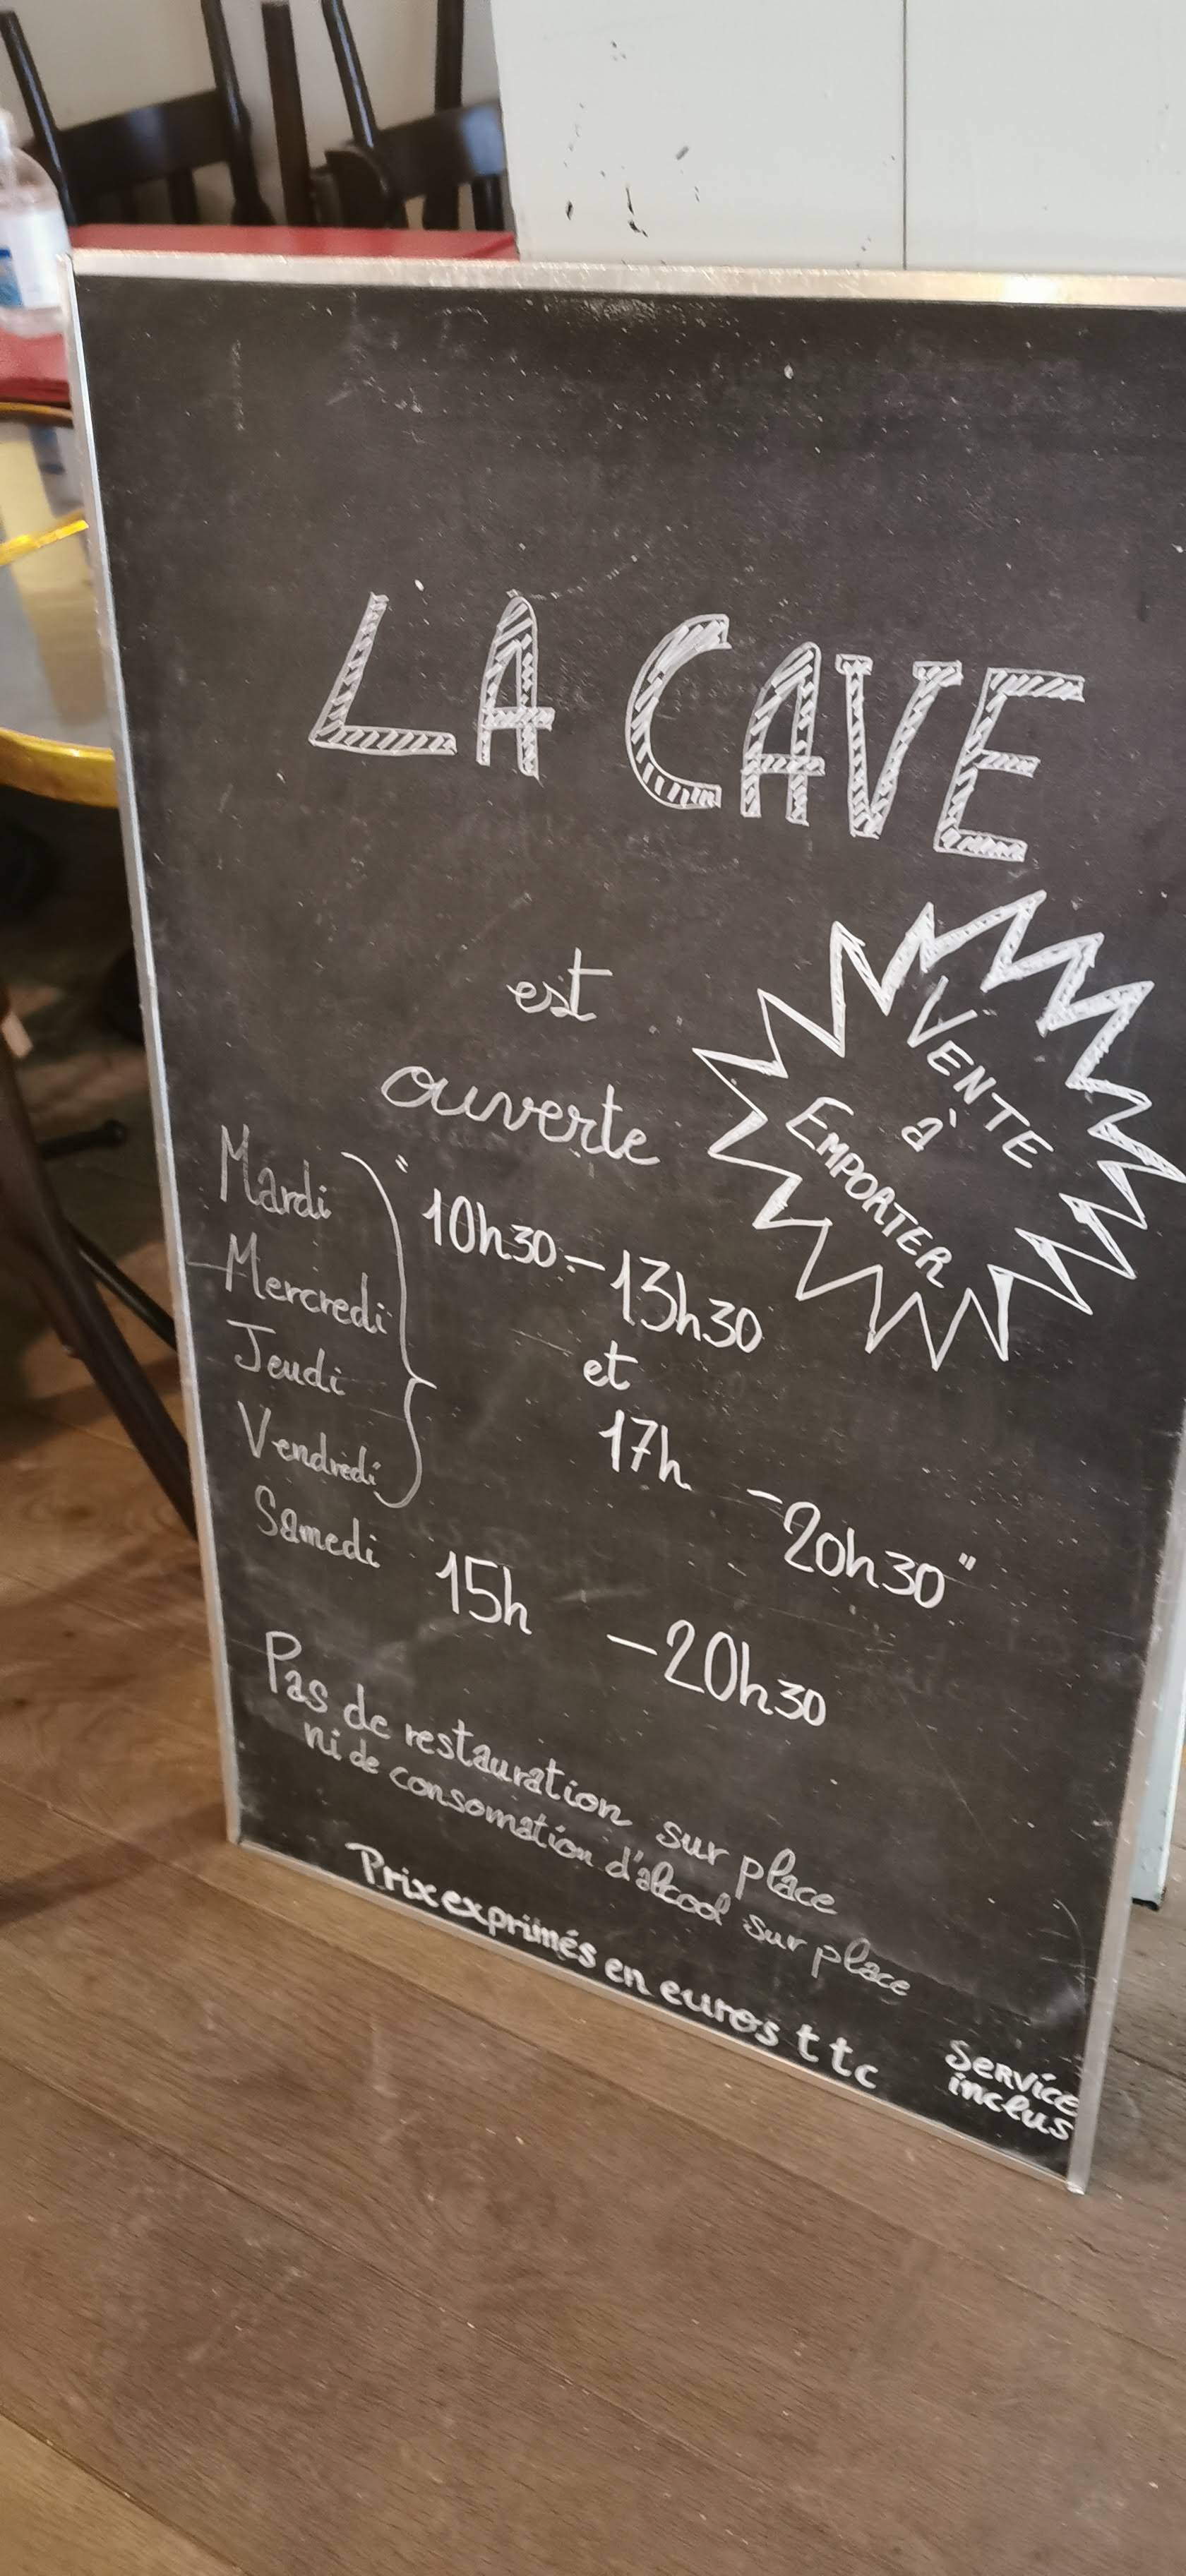 LA CAVE
est
ouverte
VENTE
à
EMPORTER
Mardi
Mercredi
Jeudi
Vendredi
" 10h30 - 13h30
et
17h - 20h30 "
Samedi 15h - 20h30
Pas de restauration sur place
ni de consomation d'alcool sur place
Prix exprimés en euros ttc
Service
inclus